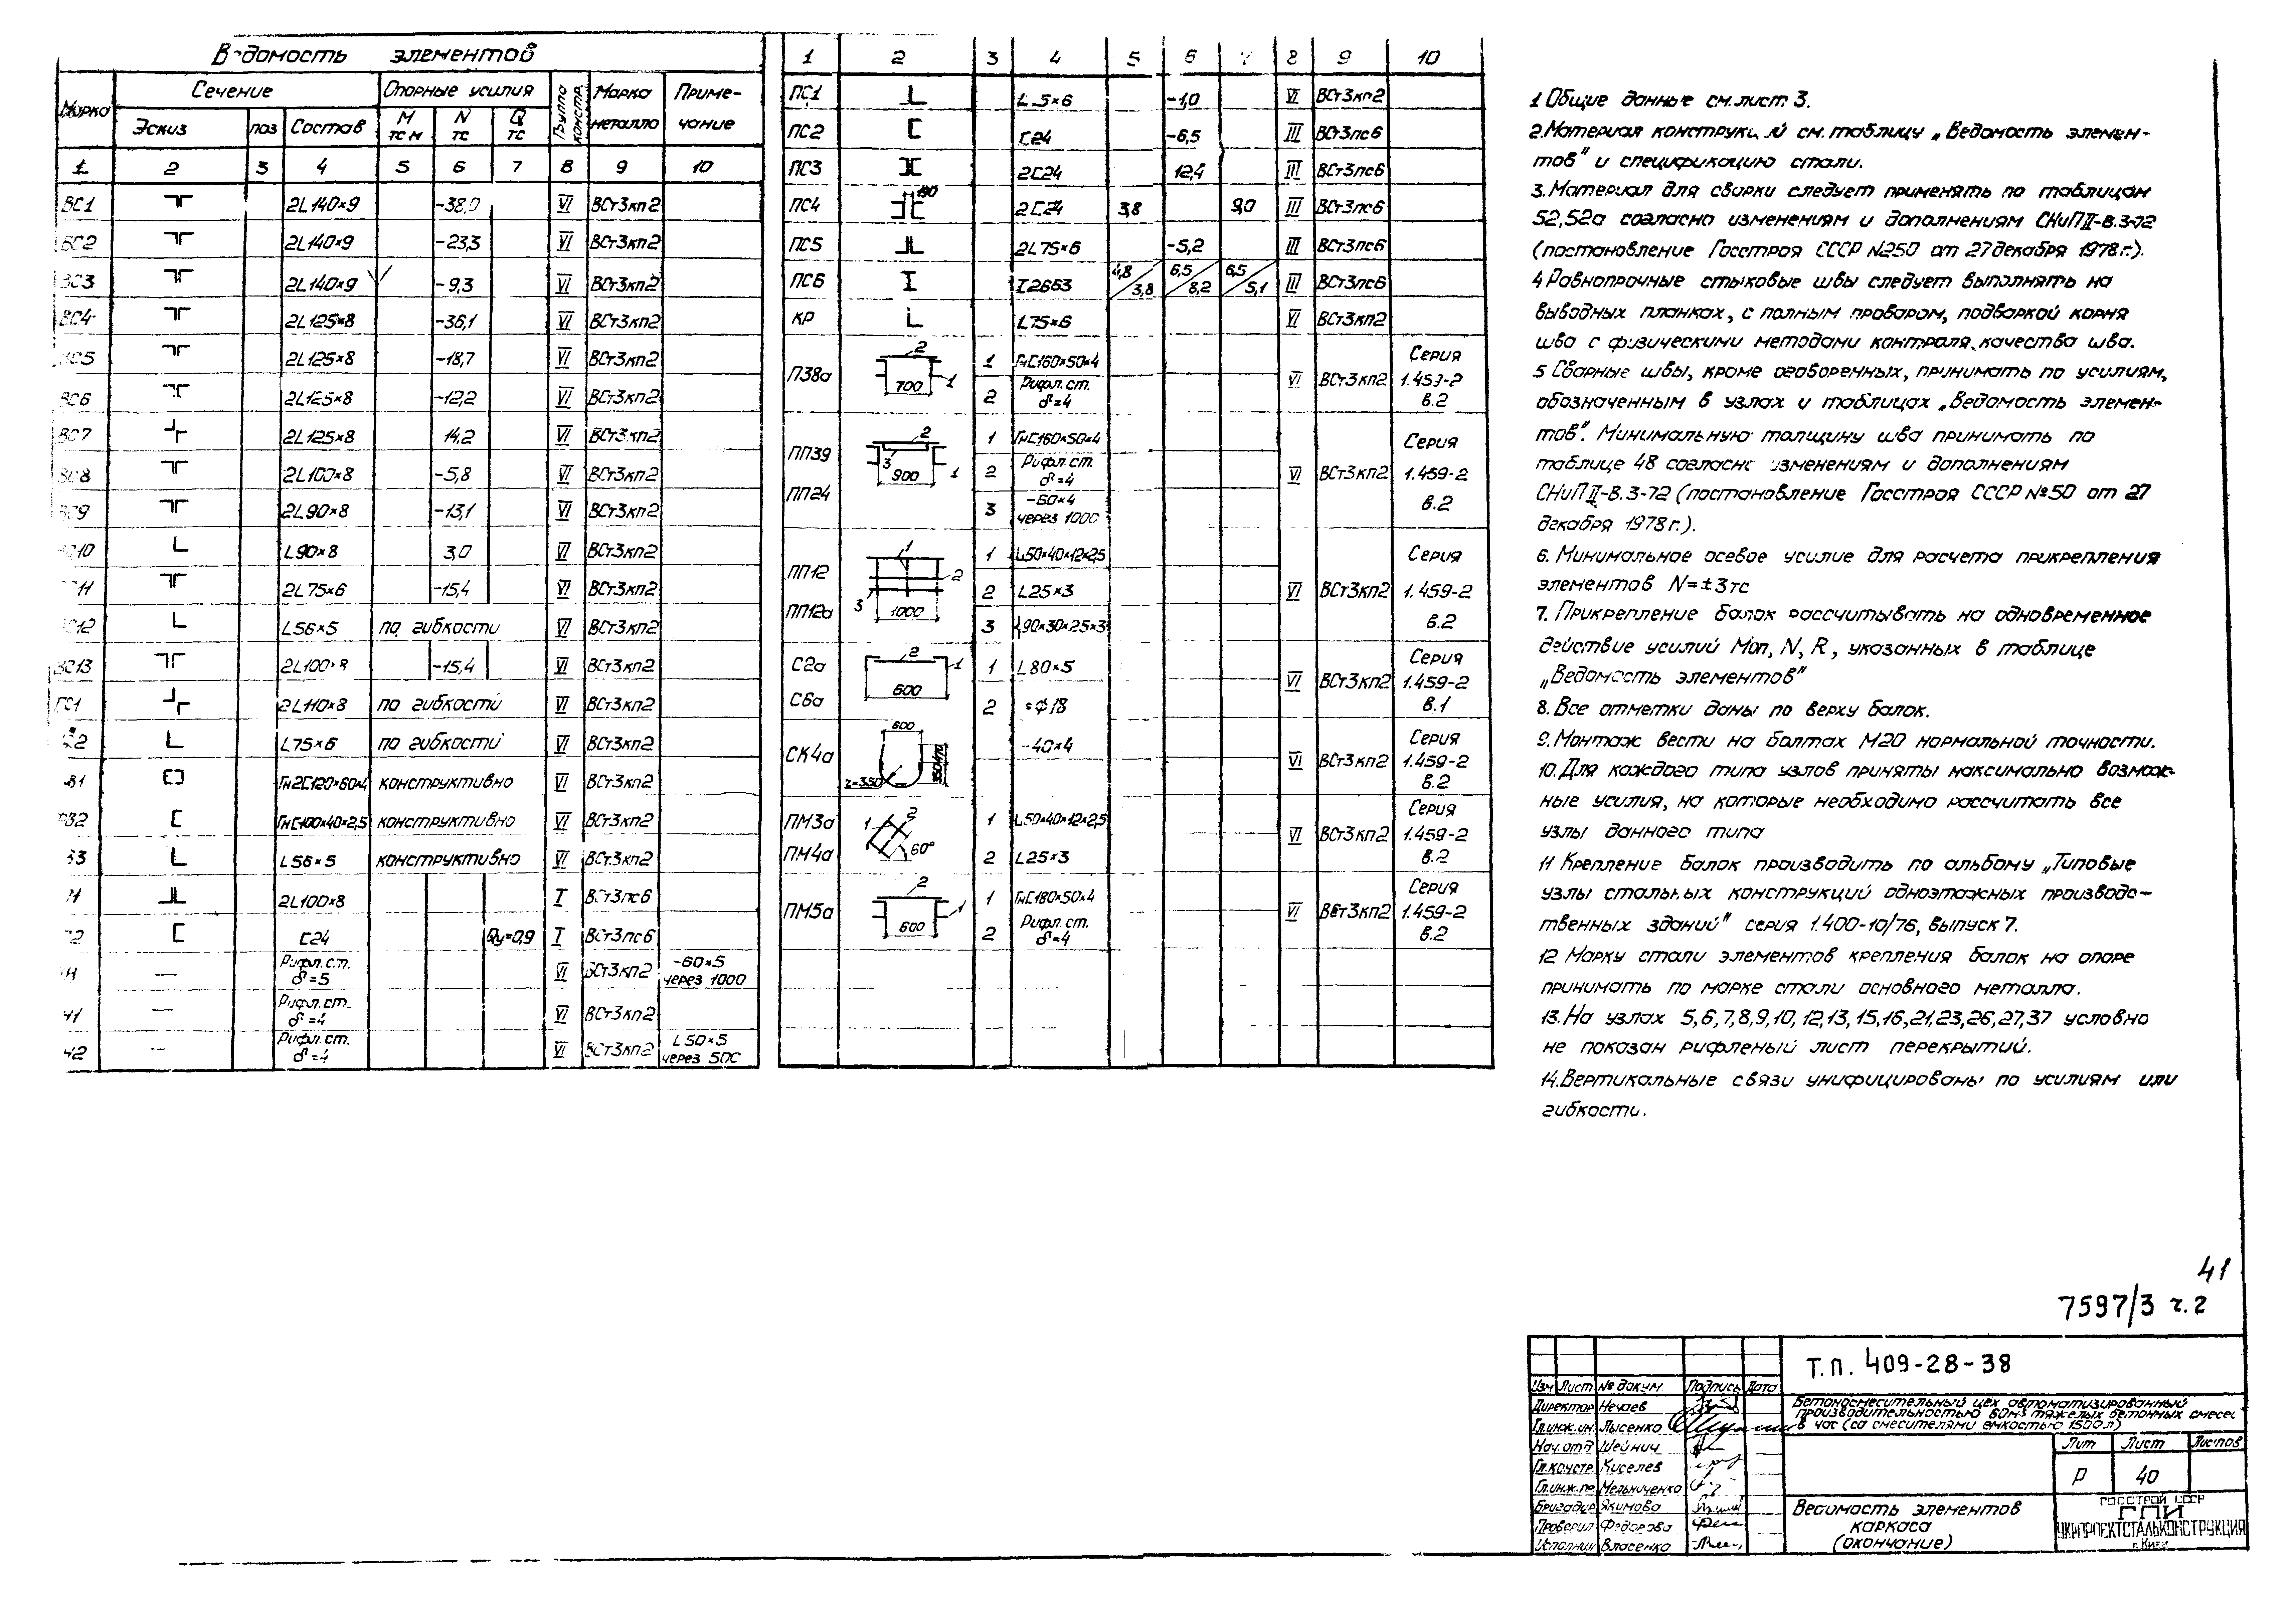 Ведомость элементов
Марка
Сечение
Опорные усилия
Группа констр.
Марка металла
Приме-
чание
Эскиз
поз
Состав
М тс м
N тс
Q тс
1 2 3 4 5 6 7 8 9 10
ВС1 2L140×9 -38,0 VI ВСт3кп2
ВС2 2L140×9 -23,3 VI ВСт3кп2
ВС3 2L140×9 -9,3 VI ВСт3кп2
ВС4 2L125×8 -36,1 VI ВСт3кп2
ВС5 2L125×8 -18,7 VI ВСт3кп2
ВС6 2L125×8 -12,2 VI ВСт3кп2
ВС7 2L125×8 14,2 VI ВСт3кп2
ВС8 2L100×8 -5,8 VI ВСт3кп2
ВС9 2L90×8 -13,1 VI ВСт3кп2
ВС10 L90×8 3,0 VI ВСт3кп2
ВС11 2L75×6 -15,4 VI ВСт3кп2
ВС12 L56×5 по гибкости VI ВСт3кп2
ВС13 2L100×8 -15,4 VI ВСт3кп2
ГС1 2L110×8 по гибкости VI ВСт3кп2
2 L75×6 по гибкости VI ВСт3кп2
В1 Гн2С120×60×4 конструктивно VI ВСт3кп2
В2 ГнС100×40×2,5 конструктивно VI ВСт3кп2
В3 L56×5 конструктивно VI ВСт3кп2
1 2L100×8 I ВСт3пс6
2 С24 Qу=0,9 I ВСт3пс6
Рифл.ст. δ=5 VI ВСт3кп2 -60×5 через 1000
Ч1 Рифл.ст. δ=4 VI ВСт3кп2
Ч2 Рифл.ст. δ=4 VI ВСт3кп2 L50×5 через 500
1 2 3 4 5 6 7 8 9 10
ПС1 L75×6 -1,0 VI ВСт3кп2
ПС2 С24 -6,5 III ВСт3пс6
ПС3 2С24 12,4 III ВСт3пс6
ПС4 190 2С24 3,8 9,0 III ВСт3пс6
ПС5 2L75×6 -5,2 III ВСт3пс6
ПС6 I26Б3 4,8/3,8 6,5/8,2 6,5/5,1 III ВСт3пс6
КР L75×6 VI ВСт3кп2
П38а 2 1 700
1 ГнС160×50×4
2 Рифл.ст. δ=4
VI ВСт3кп2 Серия 1.459-2 в.2
ПП39
ПП24
2 3 1 900
1 ГнС160×50×4
2 Рифл.ст. δ=4
3 -60×4 через 1000
VI ВСт3кп2 Серия 1.459-2 в.2
ПП12
ПП12а
1 2 3 1000
1 L50×40×12×2,5
2 L25×3
3 90×30×25×3
VI ВСт3кп2 Серия 1.459-2 в.2
С2а
С6а
2 1 600
1 L80×5
2 ф18
VI ВСт3кп2 Серия 1.459-2 в.1
СК4а 600 r=350 -40×4 VI ВСт3кп2 Серия 1.459-2 в.2
ПМ3а
ПМ4а
1 2 60°
1 L50×40×12×2,5
2 L25×3
VI ВСт3кп2 Серия 1.459-2 в.2
ПМ5а 2 1 600
1 ГнС180×50×4
2 Рифл.ст. δ=4
VI ВСт3кп2 Серия 1.459-2 в.2
1 Общие данные см.лист 3.
2.Материал конструкций см.таблицу „Ведомость элемен-
тов" и спецификацию стали.
3.Материал для сварки следует применять по таблицам
52,52а согласно изменениям и дополнениям СНиПII-В.3-72
(постановление Госстроя СССР №250 от 27 декабря 1978г.).
4 Равнопрочные стыковые швы следует выполнять на
выводных планках, с полным проваром, подваркой корня
шва с физическими методами контроля качества шва.
5 Сварные швы, кроме оговоренных, принимать по усилиям,
обозначенным в узлах и таблицах „Ведомость элемен-
тов". Минимальную толщину шва принимать по
таблице 48 согласно изменениям и дополнениям
СНиП II-В.3-72 (постановление Госстроя СССР №50 от 27
декабря 1978г.).
6. Минимальное осевое усилие для расчета прикрепления
элементов N=±3тс
7. Прикрепление балок рассчитывать на одновременное
действие усилий Моп, N, R, указанных в таблице
„Ведомость элементов"
8. Все отметки даны по верху балок.
9.Монтаж вести на болтах М20 нормальной точности.
10.Для каждого типа узлов приняты максимально возмож-
ные усилия, на которые необходимо рассчитать все
узлы данного типа
11 Крепление балок производить по альбому „Типовые
узлы стальных конструкций одноэтажных производс-
твенных зданий" серия 1.400-10/76, выпуск 7.
12 Марку стали элементов крепления балок на опоре
принимать по марке стали основного металла.
13.На узлах 5,6,7,8,9,10,12,13,15,16,21,23,26,27,37 условно
не показан рифленый лист перекрытий.
14.Вертикальные связи унифицированы по усилиям или
гибкости.
41
7597/3 ч.2
Т.П. 409-28-38
Изм Лист № докум. Подпись Дата
Директор Нечаев
Гл.инж.ин. Лысенко
Нач.отд Шейнич
Гл.констр. Киселев
Гл.инж.пр. Мельниченко
Бригадир Якимова
Проверил Федорова
Исполнил Власенко
Бетоносмесительный цех автоматизированный
производительностью 60м³ тяжелых бетонных смесей
в час (со смесителями емкостью 1500л)
Лит Лист Листов
Р 40
Ведомость элементов
каркаса
(окончание)
ГОССТРОЙ СССР
ГПИ
УКРПРОЕКТСТАЛЬКОНСТРУКЦИЯ
г. Киев